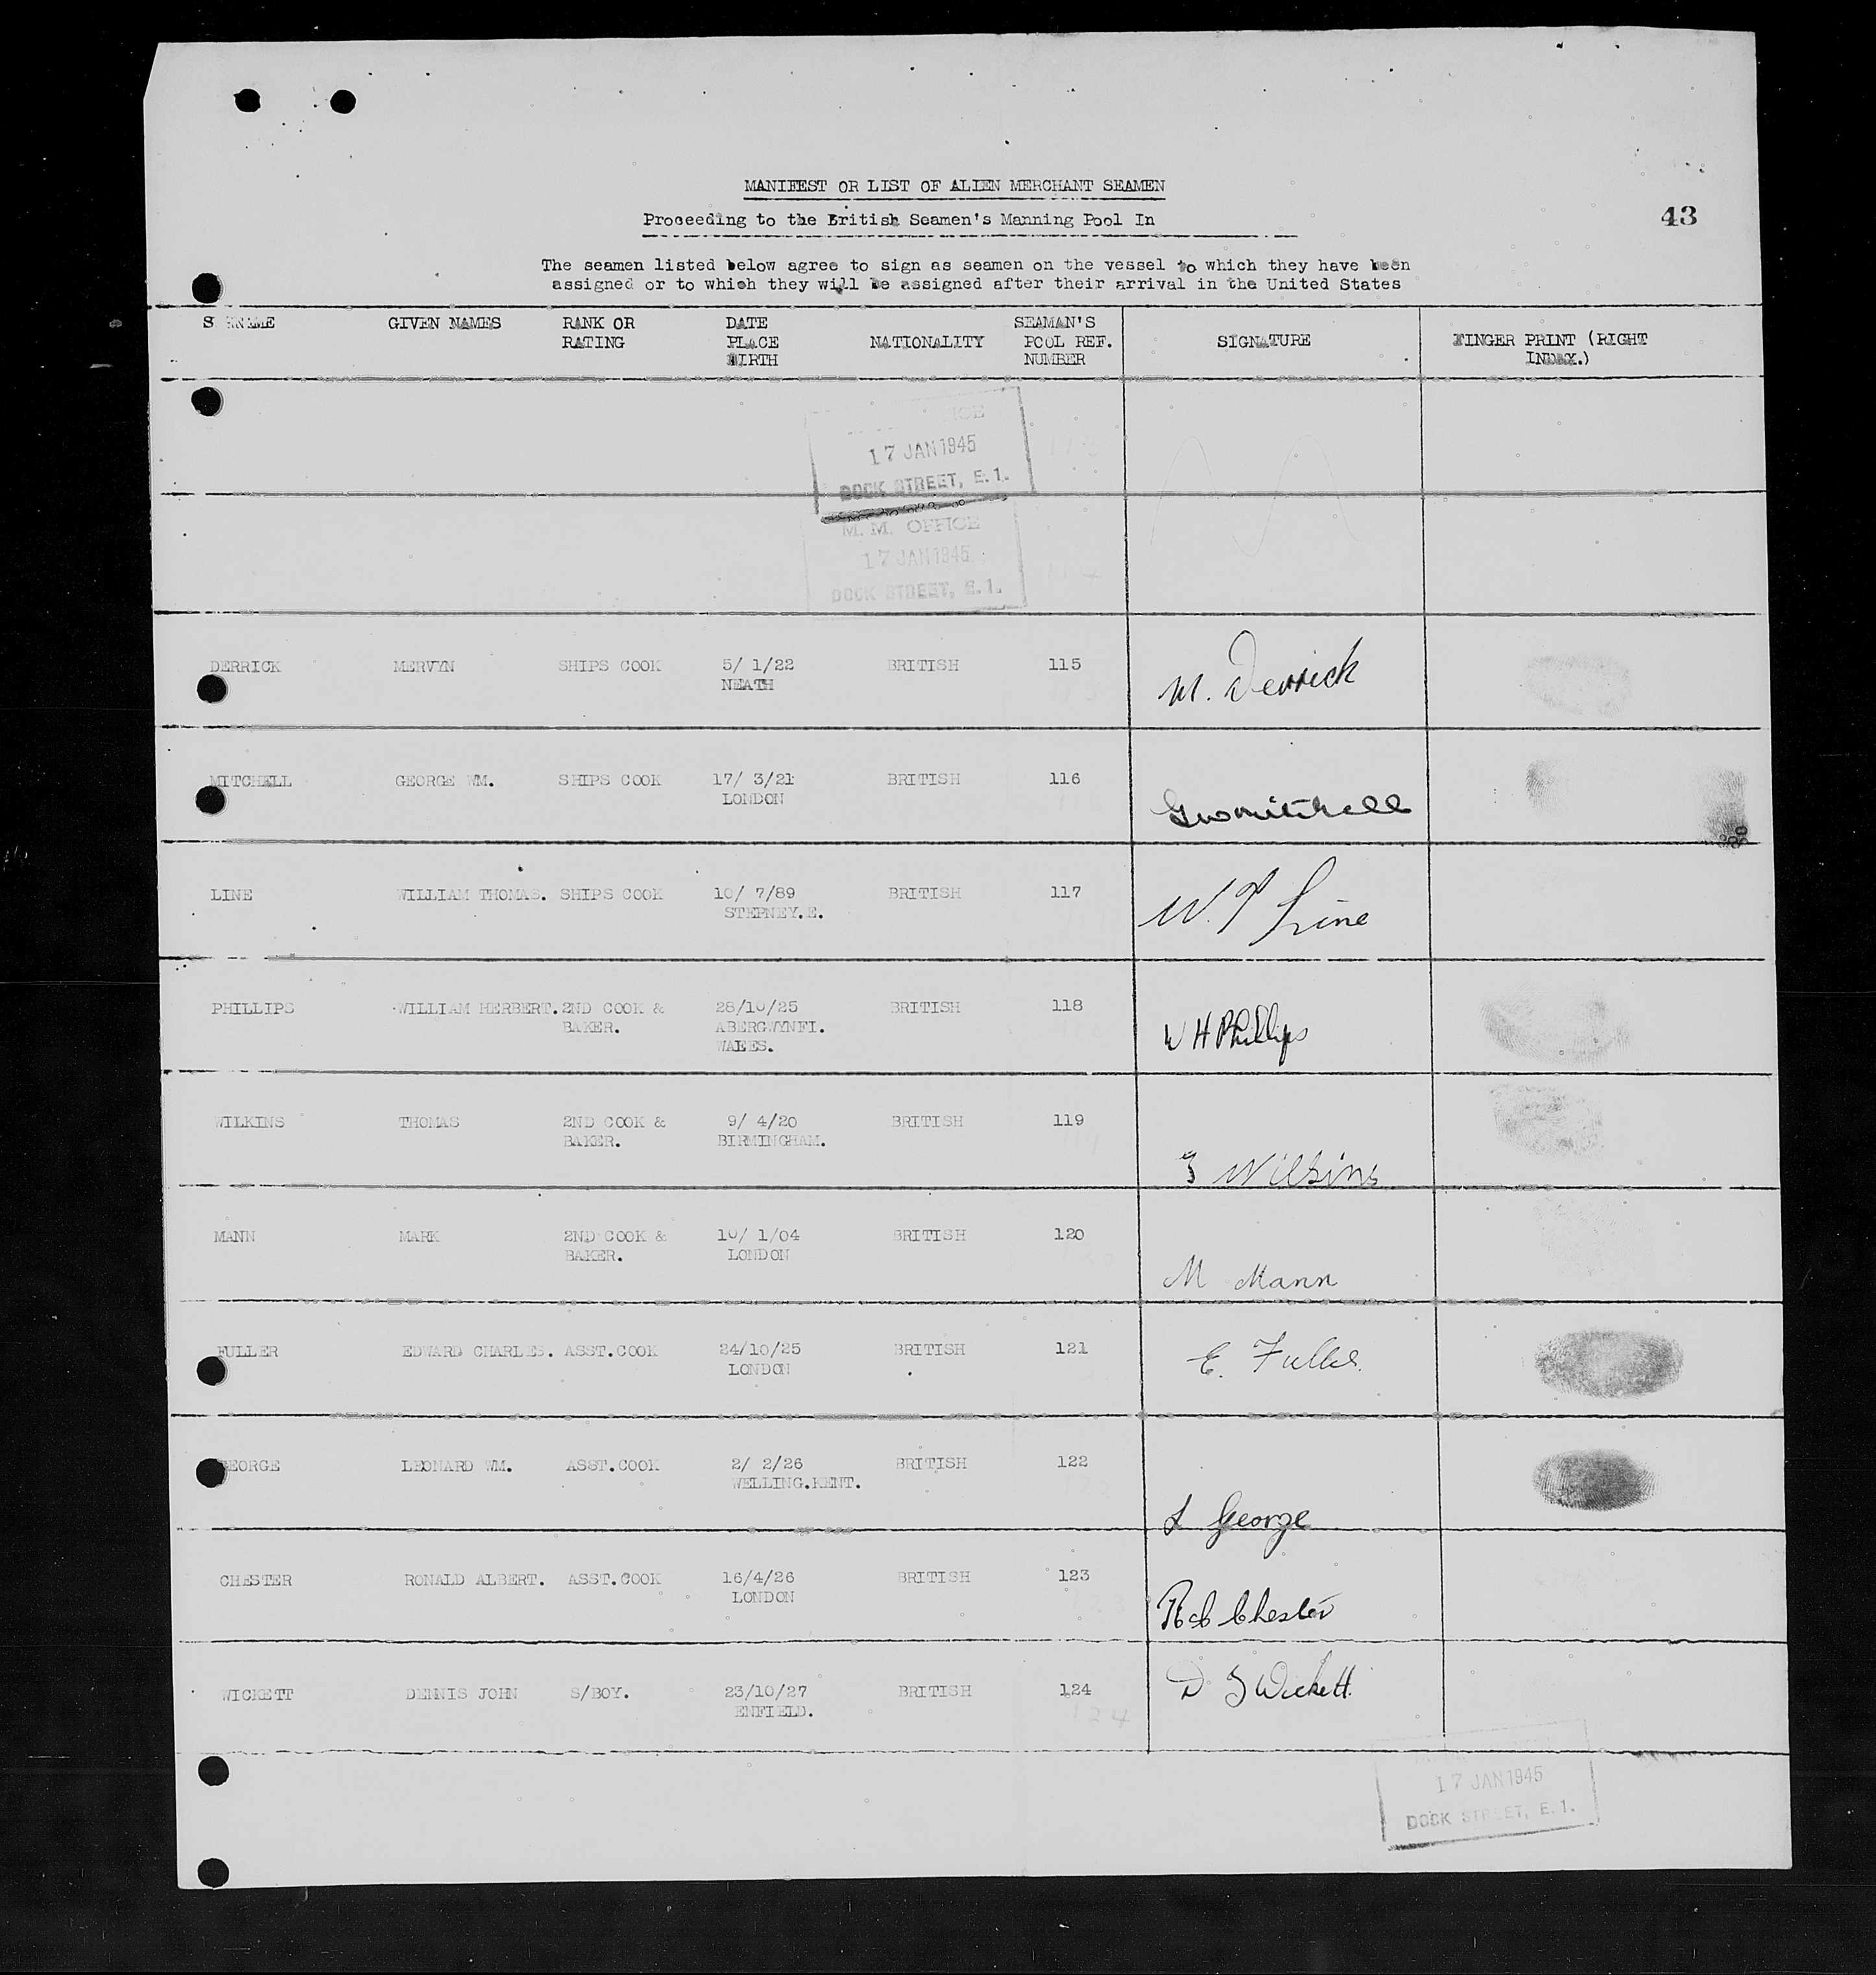 MANIFEST OR LIST OF ALIEN MERCHANT SEAMEN
Proceeding to the British Seamen's Manning Pool In
43
The seamen listed below agree to sign as seamen on the vessel to which they have been
assigned or to which they will be assigned after their arrival in the United States
SURNAME GIVEN NAMES RANK OR RATING DATE PLACE BIRTH NATIONALITY SEAMAN'S POOL REF. NUMBER SIGNATURE FINGER PRINT (RIGHT INDEX.)
17 JAN 1945
DOCK STREET, E.1.
M. M. OFFICE
17 JAN 1945
DOCK STREET, E.1.
DERRICK MERVYN SHIPS COOK 5/ 1/22 BRITISH 115 M. Derrick
NEATH
MITCHELL GEORGE WM. SHIPS COOK 17/ 3/21 BRITISH 116 GWMitchell
LONDON
LINE WILLIAM THOMAS. SHIPS COOK 10/ 7/89 BRITISH 117 W. T Line
STEPNEY.E.
PHILLIPS WILLIAM HERBERT. 2ND COOK & 28/10/25 BRITISH 118 W H Phillips
BAKER. ABERGWYNFI.
WALES.
WILKINS THOMAS 2ND COOK & 9/ 4/20 BRITISH 119 T Wilkins
BAKER. BIRMINGHAM.
MANN MARK 2ND COOK & 10/ 1/04 BRITISH 120 M Mann
BAKER. LONDON
FULLER EDWARD CHARLES. ASST.COOK 24/10/25 BRITISH 121 E. Fuller.
LONDON
GEORGE LEONARD WM. ASST.COOK 2/ 2/26 BRITISH 122 L George
WELLING.KENT.
CHESTER RONALD ALBERT. ASST.COOK 16/4/26 BRITISH 123 R A Chester
LONDON
WICKETT DENNIS JOHN S/BOY. 23/10/27 BRITISH 124 D J Wickett.
ENFIELD. 124
17 JAN 1945
DOCK STREET, E.1.